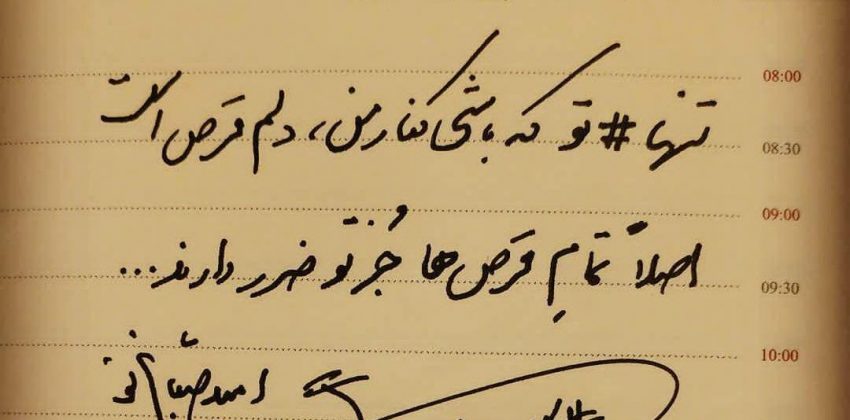 تنها #تو که باشی کنار من، دلم قرص است
08:00
08:30
اصلاً تمامِ قرص ها جُز تو ضرر دارند...
09:00
09:30
10:00
امید صباغ نو